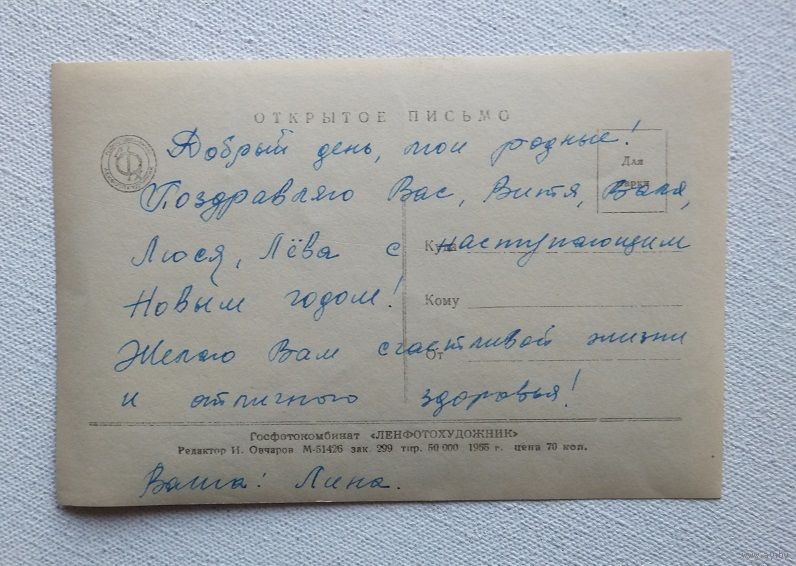 ОТКРЫТОЕ ПИСЬМО
Добрый день, мои родные!
Для марки
Поздравляю Вас, Витя, Валя,
Люся, Лёва с наступающим
Куда
Новым годом!
Кому
Желаю Вам счастливой жизни
От
и отличного здоровья!
Госфотокомбинат «ЛЕНФОТОХУДОЖНИК»
Редактор И. Овчаров М-51426 зак. 299 тир. 50 000 1955 г. цена 70 коп.
Ваша: Лина.